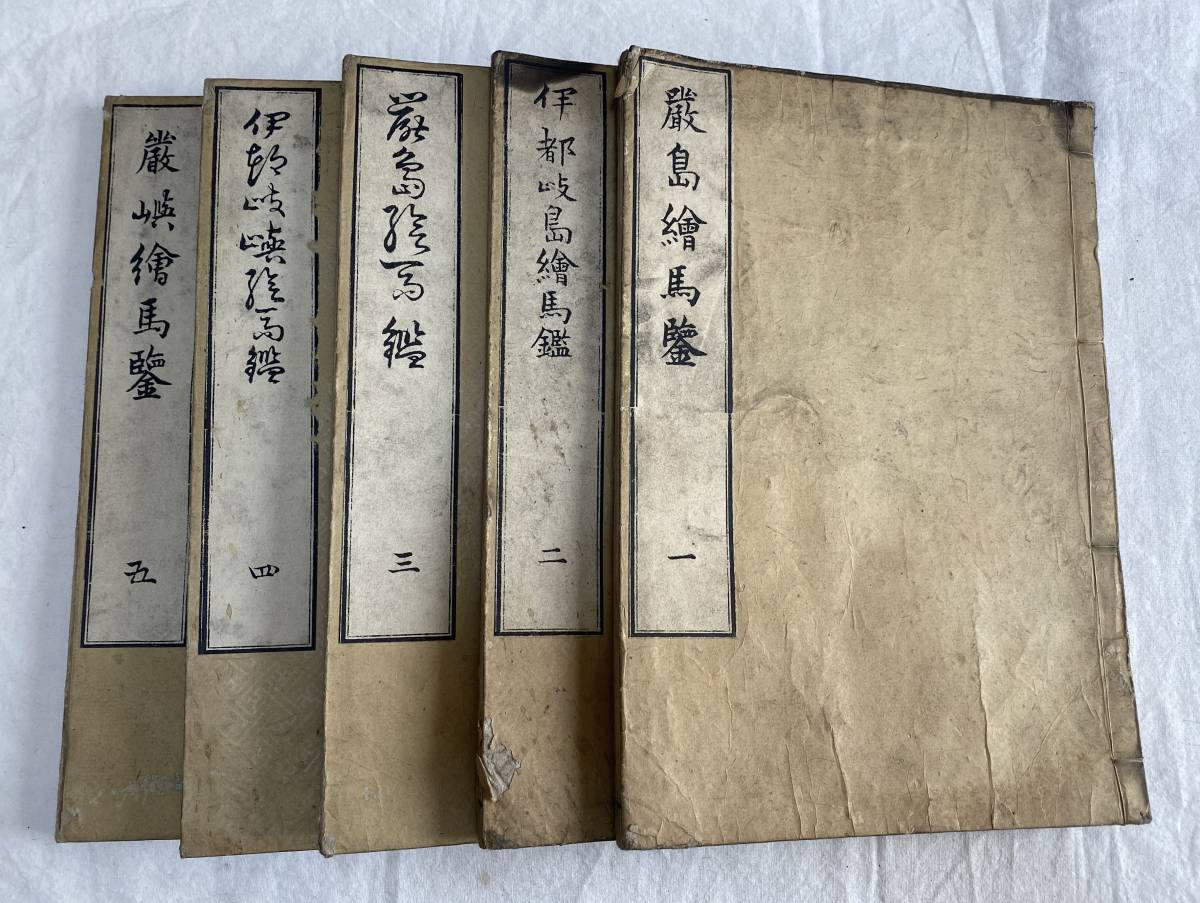 嚴島繪馬鑒
一
伊都岐島繪馬鑑
二
嚴島繪馬鑑
三
伊都岐嶼繪馬鑑
四
嚴嶼繪馬鑒
五